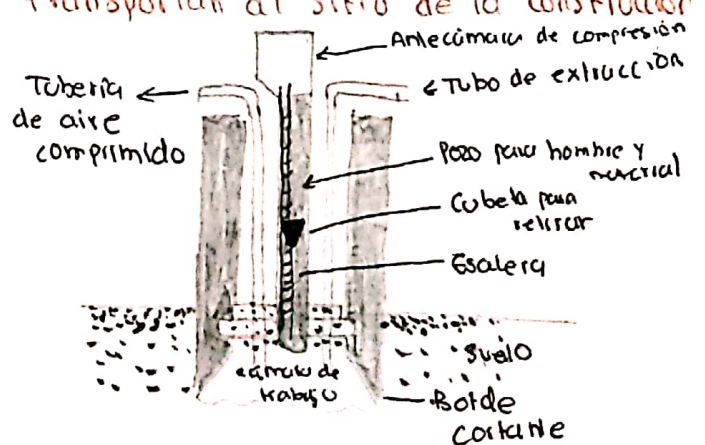 transportan al sitio de la construcción
Antecámara de compresión
Tubería
de aire
comprimido
Tubo de extracción
Pozo para hombre y
material
Cubeta para
retirar
Esalera
Suelo
cámara de
trabajo
Borde
cortante